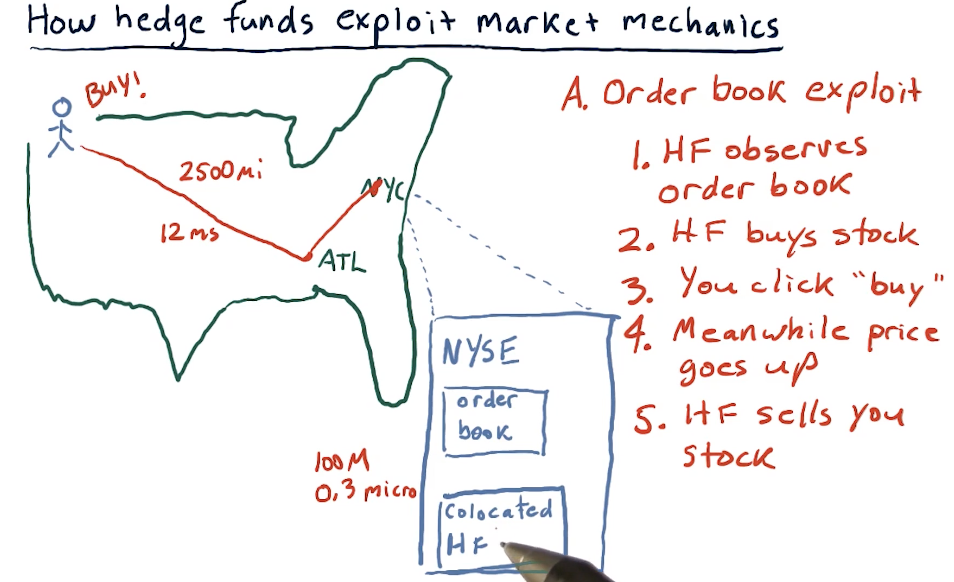 How hedge funds exploit market mechanics
BUY!
2500mi
12 ms
NYC
ATL
NYSE
order
book
100M
0.3 micro
Colocated
HF
A. Order book exploit
1. HF observes
order book
2. HF buys stock
3. You click "buy"
4. Meanwhile price
goes up
5. HF sells you
stock